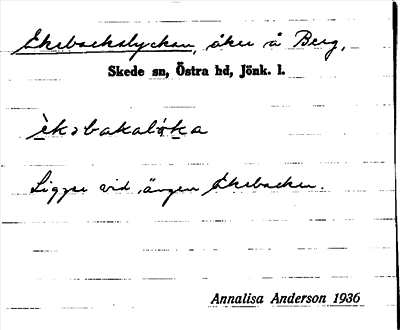 Eksbackslyckan, åker å Berg,
Skede sn, Östra hd, Jönk. l.
Ligger vid ängen Eksbacken.
Annalisa Anderson 1936